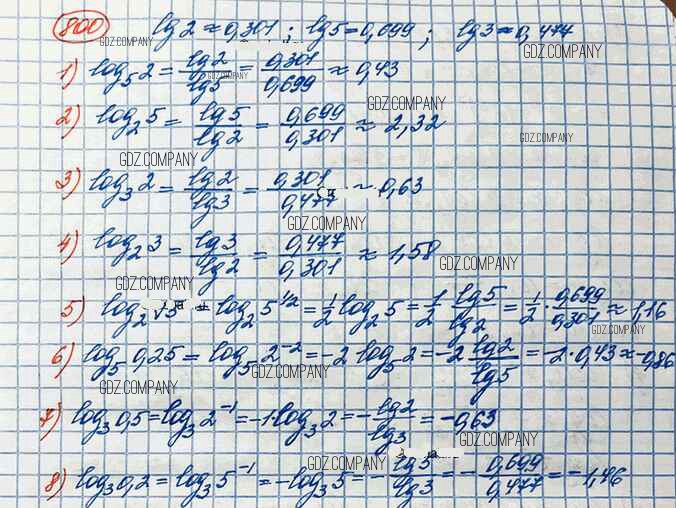 800 lg2≈0,301 ; lg5=0,699 ; lg3≈0,477
GDZ.COMPANY GDZ.COMPANY
1) log₅2 = lg2/lg5 = 0,301/0,699 ≈ 0,43
GDZ.COMPANY GDZ.COMPANY
2) log₂5 = lg5/lg2 = 0,699/0,301 ≈ 2,32
GDZ.COMPANY
GDZ.COMPANY
3) log₃2 = lg2/lg3 = 0,301/0,477 ≈ 0,63
GDZ.COMPANY
4) log₂3 = lg3/lg2 = 0,477/0,301 ≈ 1,58
GDZ.COMPANY
GDZ.COMPANY
5) log₂√5 = log₂5^1/2 = 1/2 log₂5 = 1/2 · lg5/lg2 = 1/2 · 0,699/0,301 ≈ 1,16
GDZ.COMPANY
6) log₅0,25 = log₅2⁻² = -2 log₅2 = -2 lg2/lg5 = -2·0,43 ≈ -0,86
GDZ.COMPANY
GDZ.COMPANY
7) log₃0,5 = log₃2⁻¹ = -1·log₃2 = - lg2/lg3 = -0,63
GDZ.COMPANY GDZ.COMPANY
8) log₃0,2 = log₃5⁻¹ = -log₃5 = - lg5/lg3 = - 0,699/0,477 = -1,46